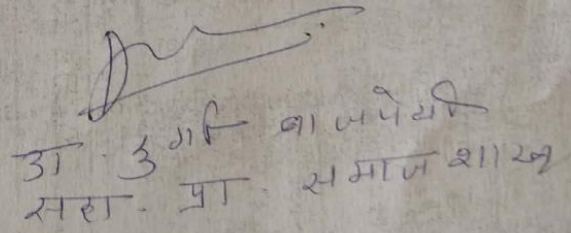 डा. दुर्गा बाजपेयी
सहा. प्रा. समाज शास्त्र